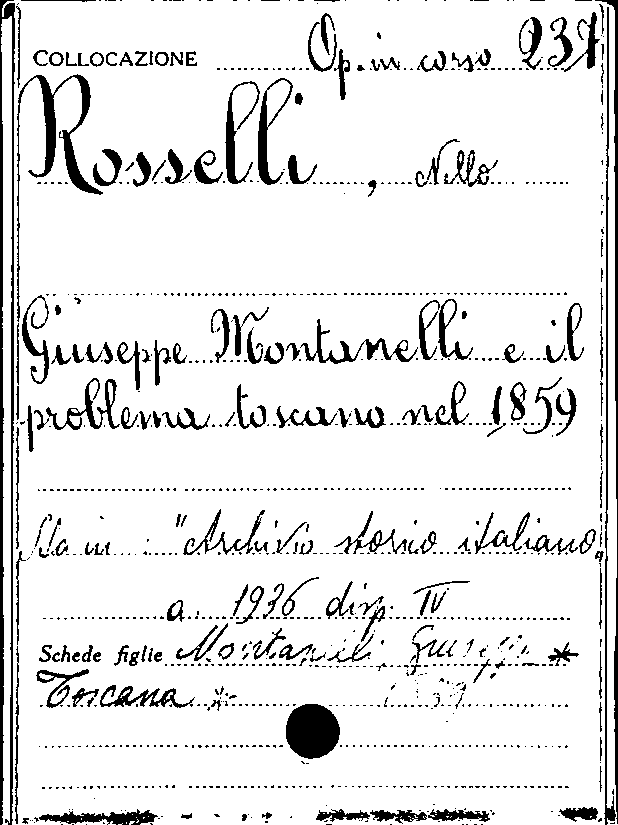 COLLOCAZIONE Op. in corso 237
Rosselli, Nello
Giuseppe Montanelli e il
problema toscano nel 1859
Sta in : "Archivio storico italiano"
a. 1936 disp. IV
Schede figlie Montanelli, Giuseppe *
Toscana * 1859